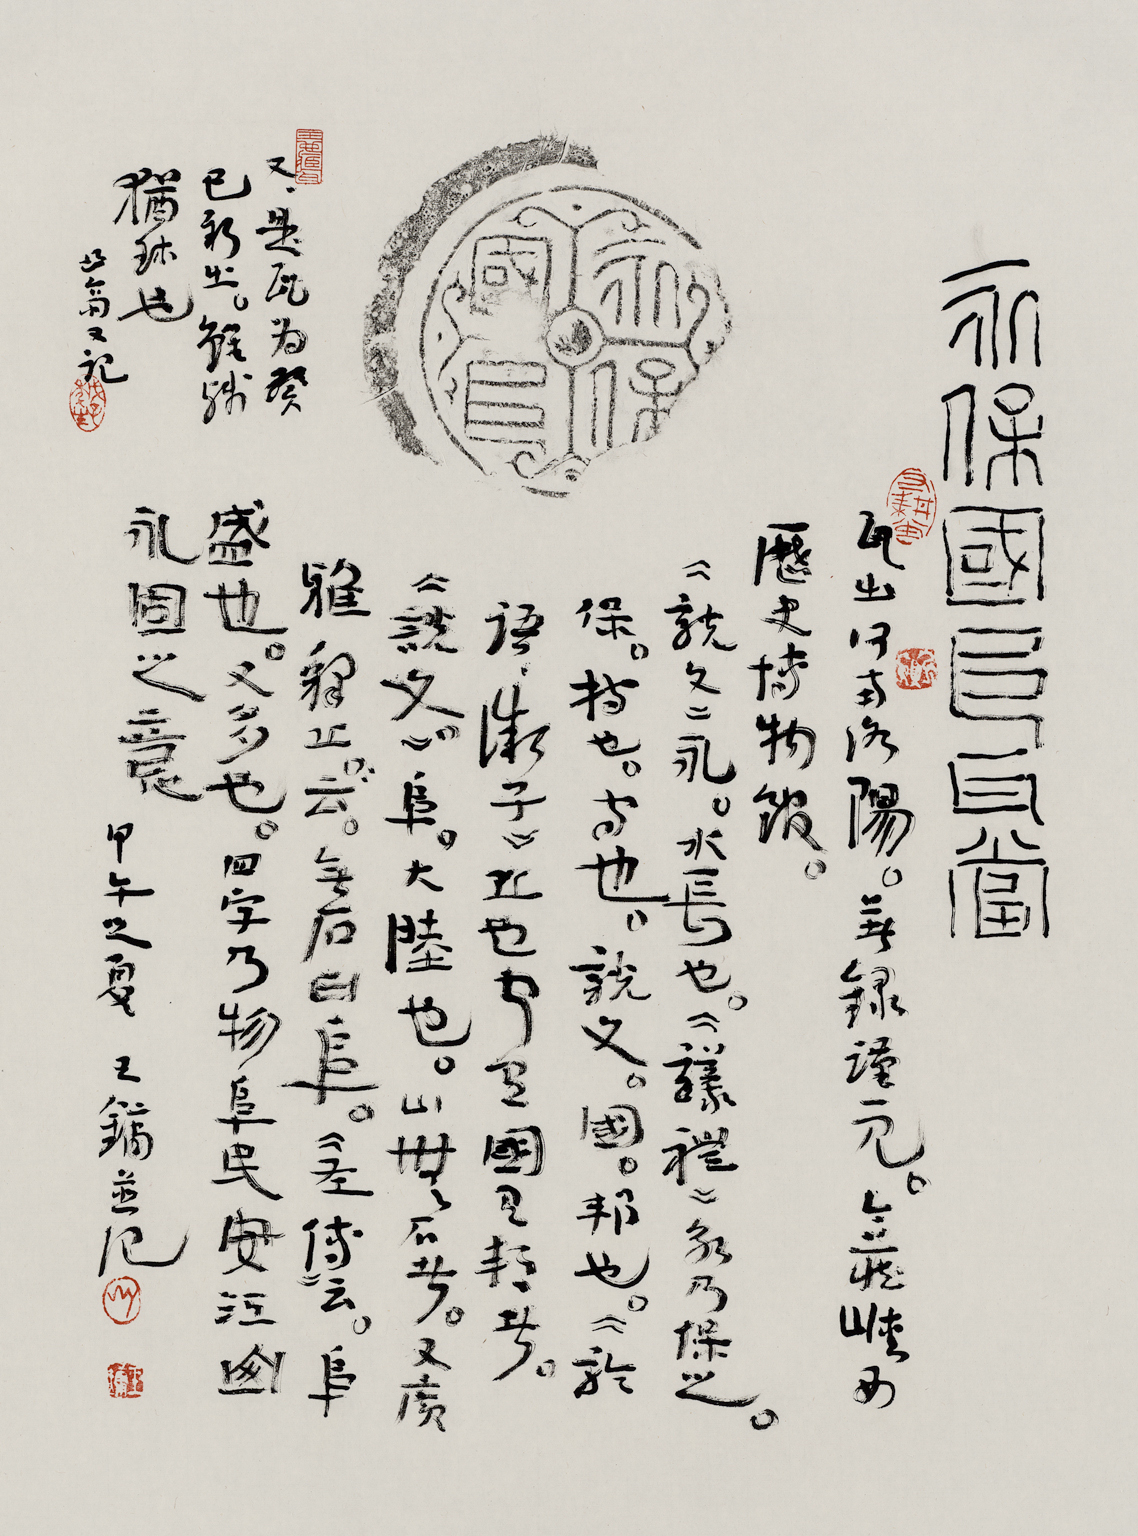 永保國阜瓦當
瓦出河南洛陽。并錄謹元。今藏峽西
歷史博物館。
《說文》永。水長也。《議禮》永乃保之。
保。持也。守也。說文。國。邦也。《論
語·衛子》丘也 國 邦 。
《說文》阜。大陸也。山無石 。又廣
雅釋丘。云。無石曰阜。《 傳》云。阜
盛也。又多也。四字乃物阜民安江山
永固之意
甲午之夏 王鏞並記
又、是瓦為癸
巳新出。雖殘
猶珠也
鼎翁又記
國永
阜保